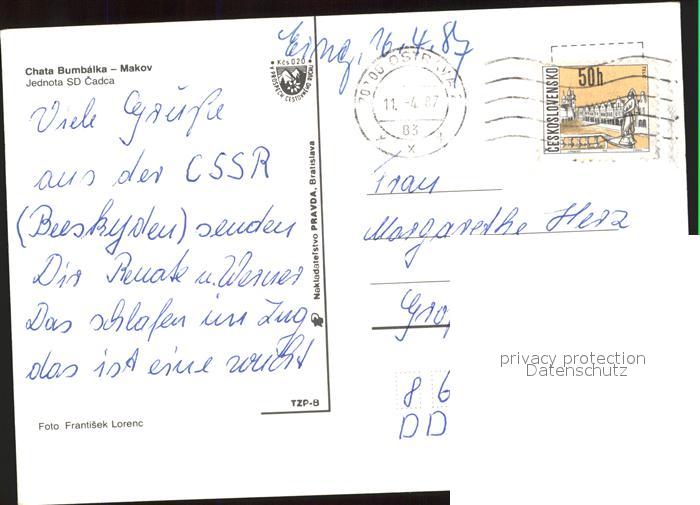 Eing. 16.4.87
Chata Bumbálka – Makov
Jednota SD Čadca
Kčs 0,20
V PROSPECH CESTOVNÉHO RUCHU
OSTRAVA
11.-4.87
83
x
50h
ČESKOSLOVENSKO
Viele Grüße
aus der CSSR
(Beeskyden) senden
Dir Renate u. Werner
Das schlafen im Zug
das ist eine wucht
Nakladateľstvo PRAVDA, Bratislava
TZP-8
Foto František Lorenc
Frau
Margarethe Herz
Gro
8 6
DD
privacy protection
Datenschutz